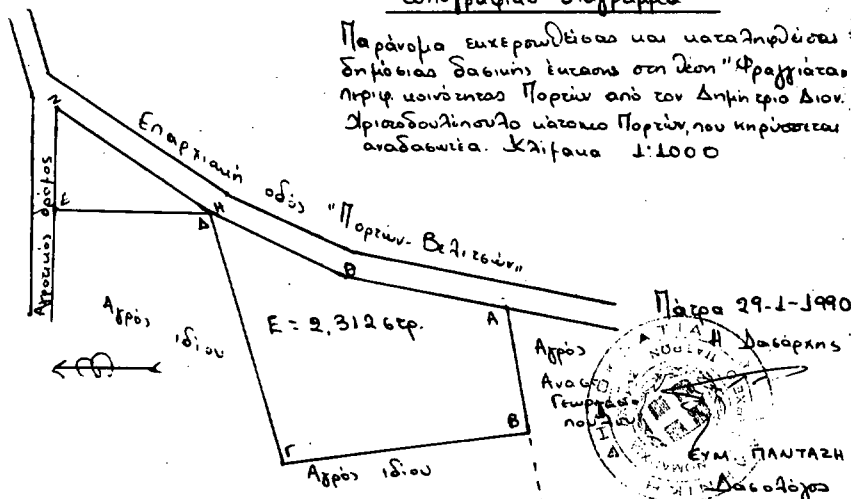 Τοπογραφικό διάγραμμα
Παράνομα εκχερσωθείσας και καταληφθείσας
δημόσιας δασικής έκτασης στη θέση "Φραγγιάτα"
περιφ. κοινότητας Πορτών από τον Δημήτριο Διον.
Χριστοδουλόπουλο κάτοικο Πορτών, που κηρύσσεται
αναδασωτέα. Κλίμακα 1:1000
Επαρχιακή οδός "Πορτών-Βελιτσών"
Αγροτικός δρόμος
Ζ
Ε
Δ
Η
Θ
Α
Β
Γ
Αγρός ιδίου
Ε = 2,312 στρ.
Αγρός ιδίου
Αγρός
Πάτρα 29-1-1990
Η Δασάρχης
ΕΥΜ. ΠΑΝΤΑΖΗ
Δασολόγος